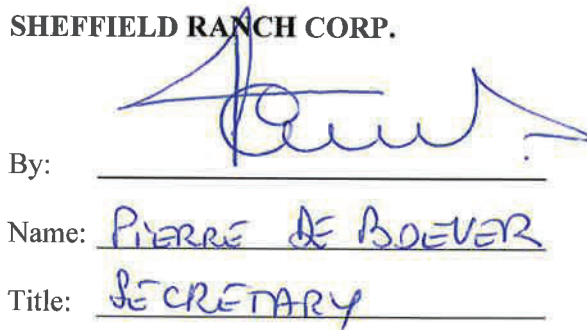 SHEFFIELD RANCH CORP.
By:
Name: PIERRE DE BOEVER
Title: SECRETARY